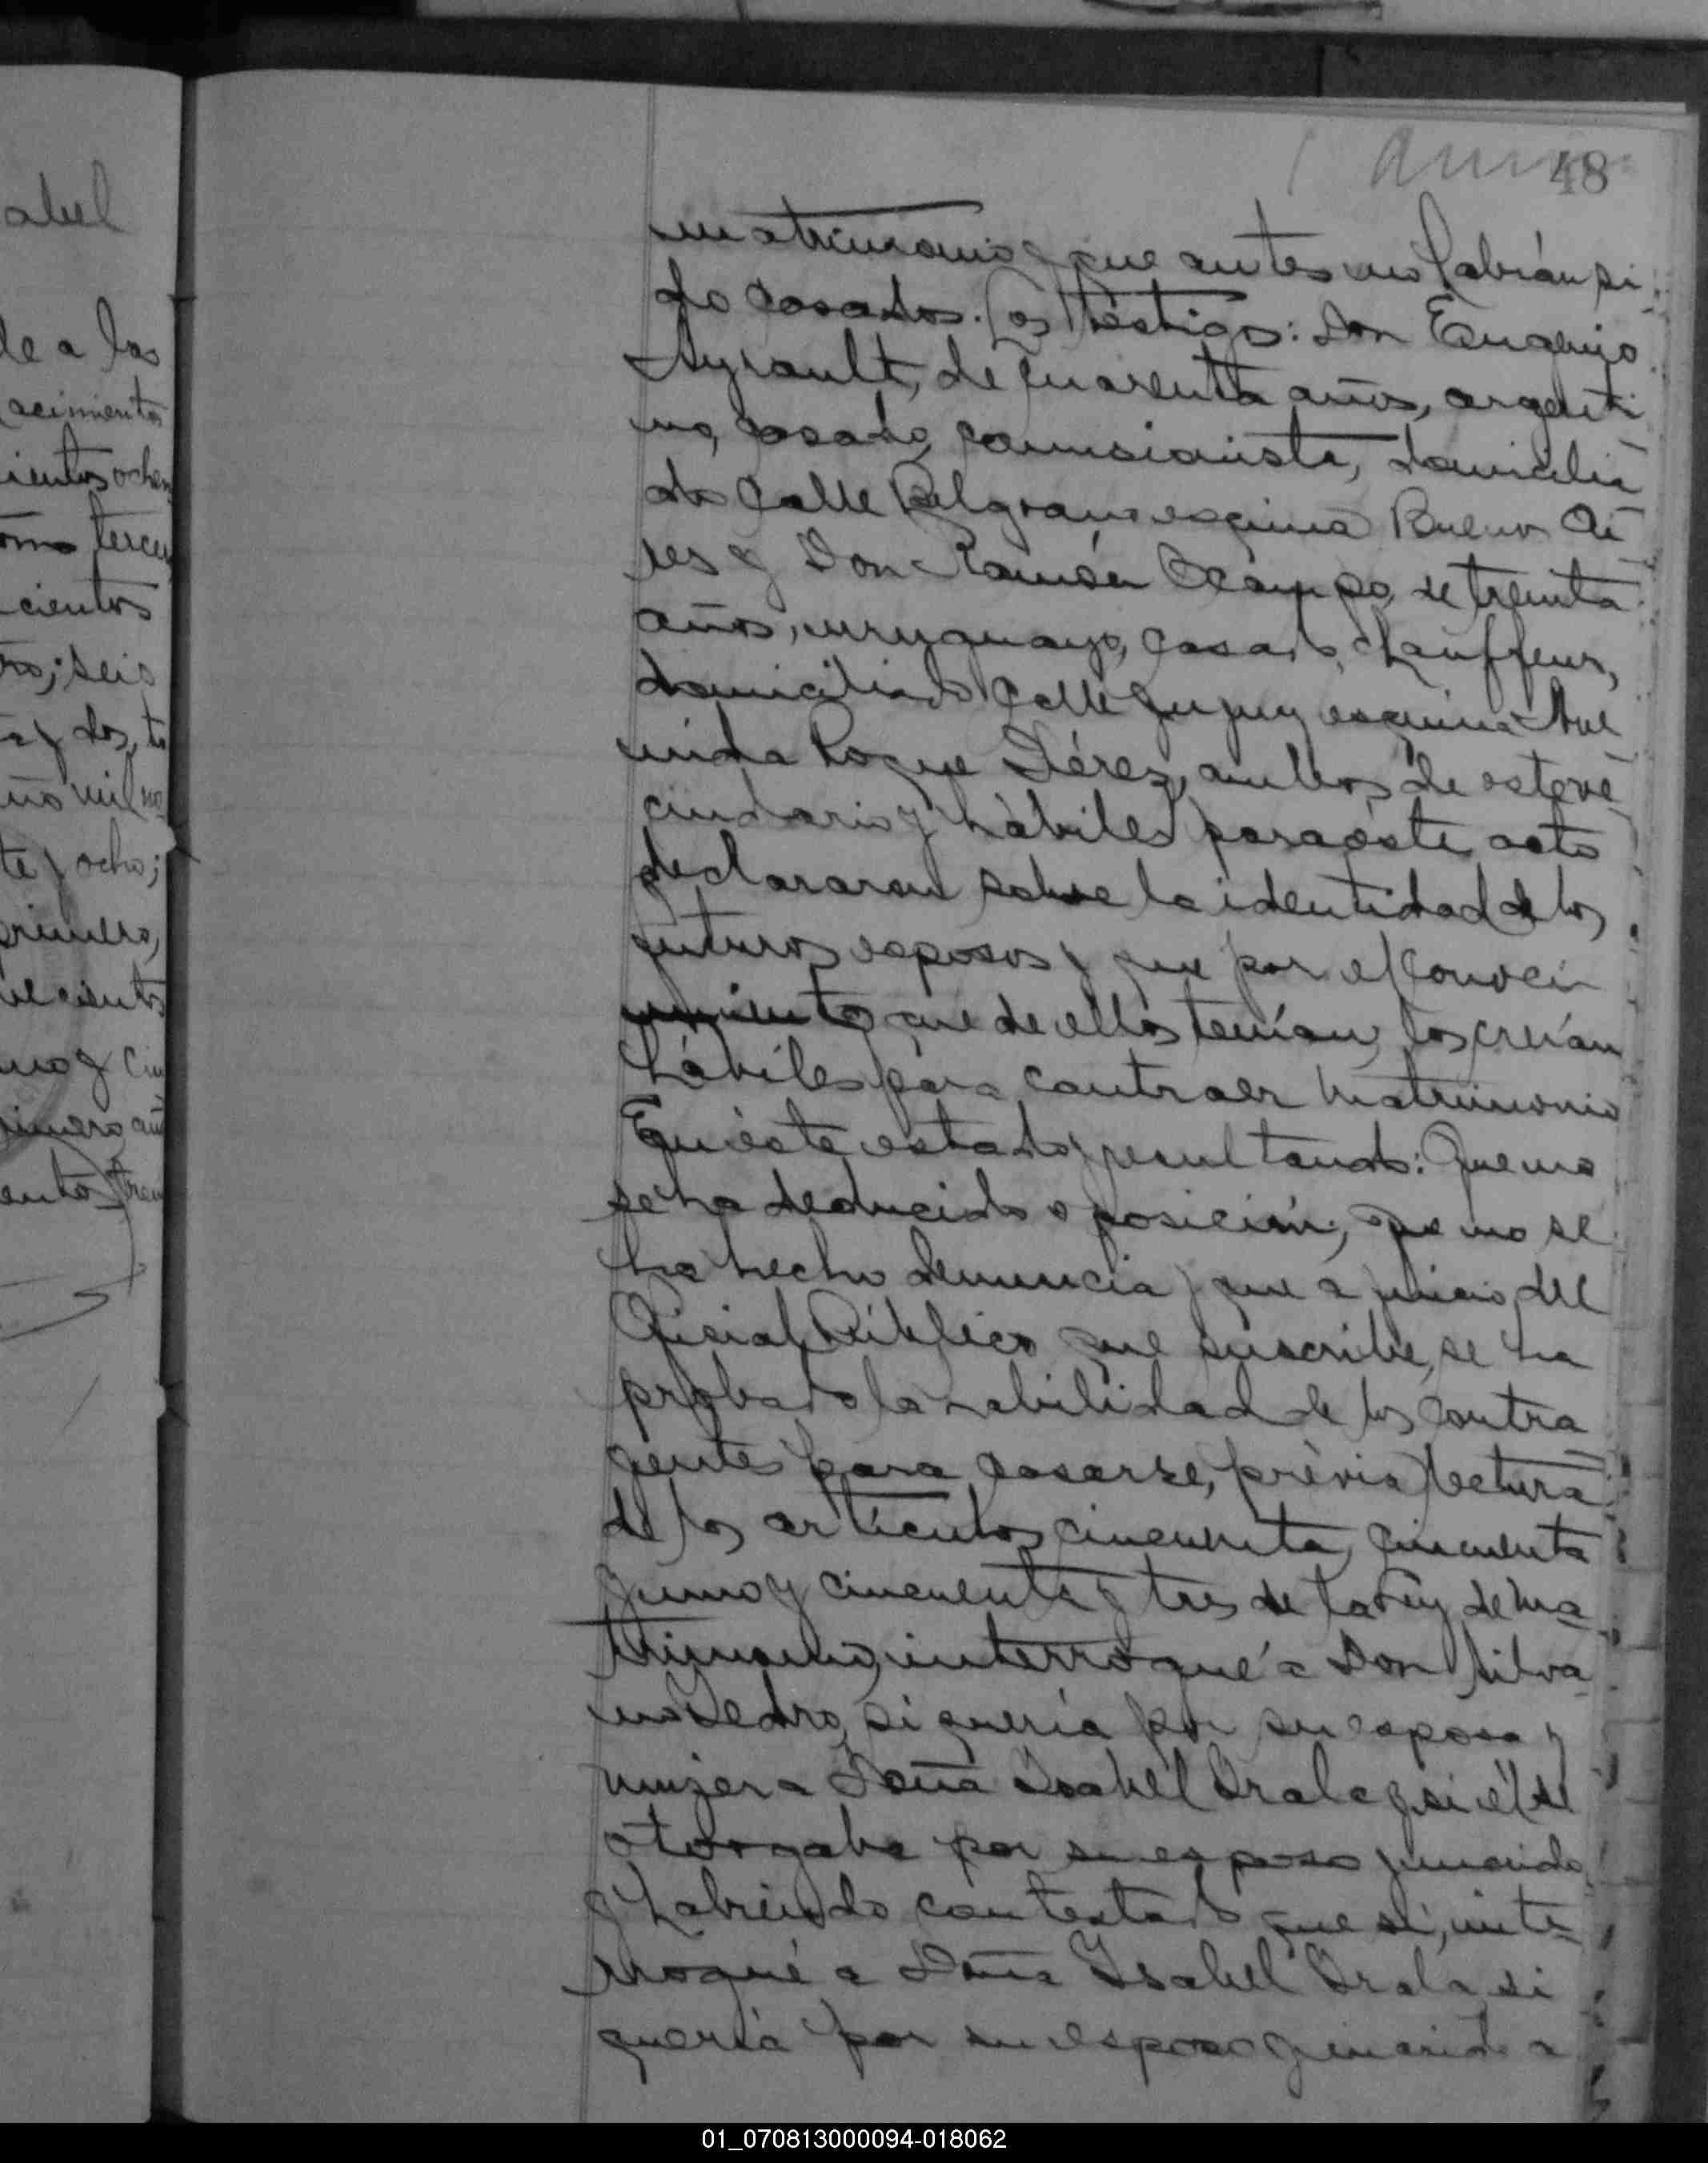 48
matrimonio y que antes no habían si
do casados. Los testigos: Don Eugenio
Ayrault, de cuarenta años, argenti
no, casado, comisionista, domicilia
do calle Belgrano esquina Buenos Ai
res y Don Ramón Ocampo, de treinta
años, uruguayo, casado, chauffeur,
domiciliado calle Jujuy esquina Ave
nida Roque Pérez, ambos de este ve
cindario y hábiles para éste acto
declararon sobre la identidad de los
futuros esposos y que por el conoci
miento que de ellos tenían, los creían
hábiles para contraer matrimonio
En éste estado y resultando: Que no
se ha deducido oposición; que no se
ha hecho denuncia y que a juicio del
Oficial Público que suscribe, se ha
probado la habilidad de los contra
yentes para casarse, prévia lectura
de los artículos cincuenta, cincuenta
y uno y cincuenta y tres de la Ley de ma
trimonio, interrogué a Don Silva
no Pedro, si quería por su esposa y
mujer a Doña Isabel Irala y si él se
otorgaba por su esposo y marido,
y habiendo contestado que sí, inte
rrogué a Doña Isabel Irala si
quería por su esposo y marido a
abel
de a las
acimientos
cientos ochen
tomo tercer
cientos
ro; seis
a y dos, to
ño mil no
te y ocho;
primero,
vecientos
uno y cin
rimero, añ
01_070813000094-018062